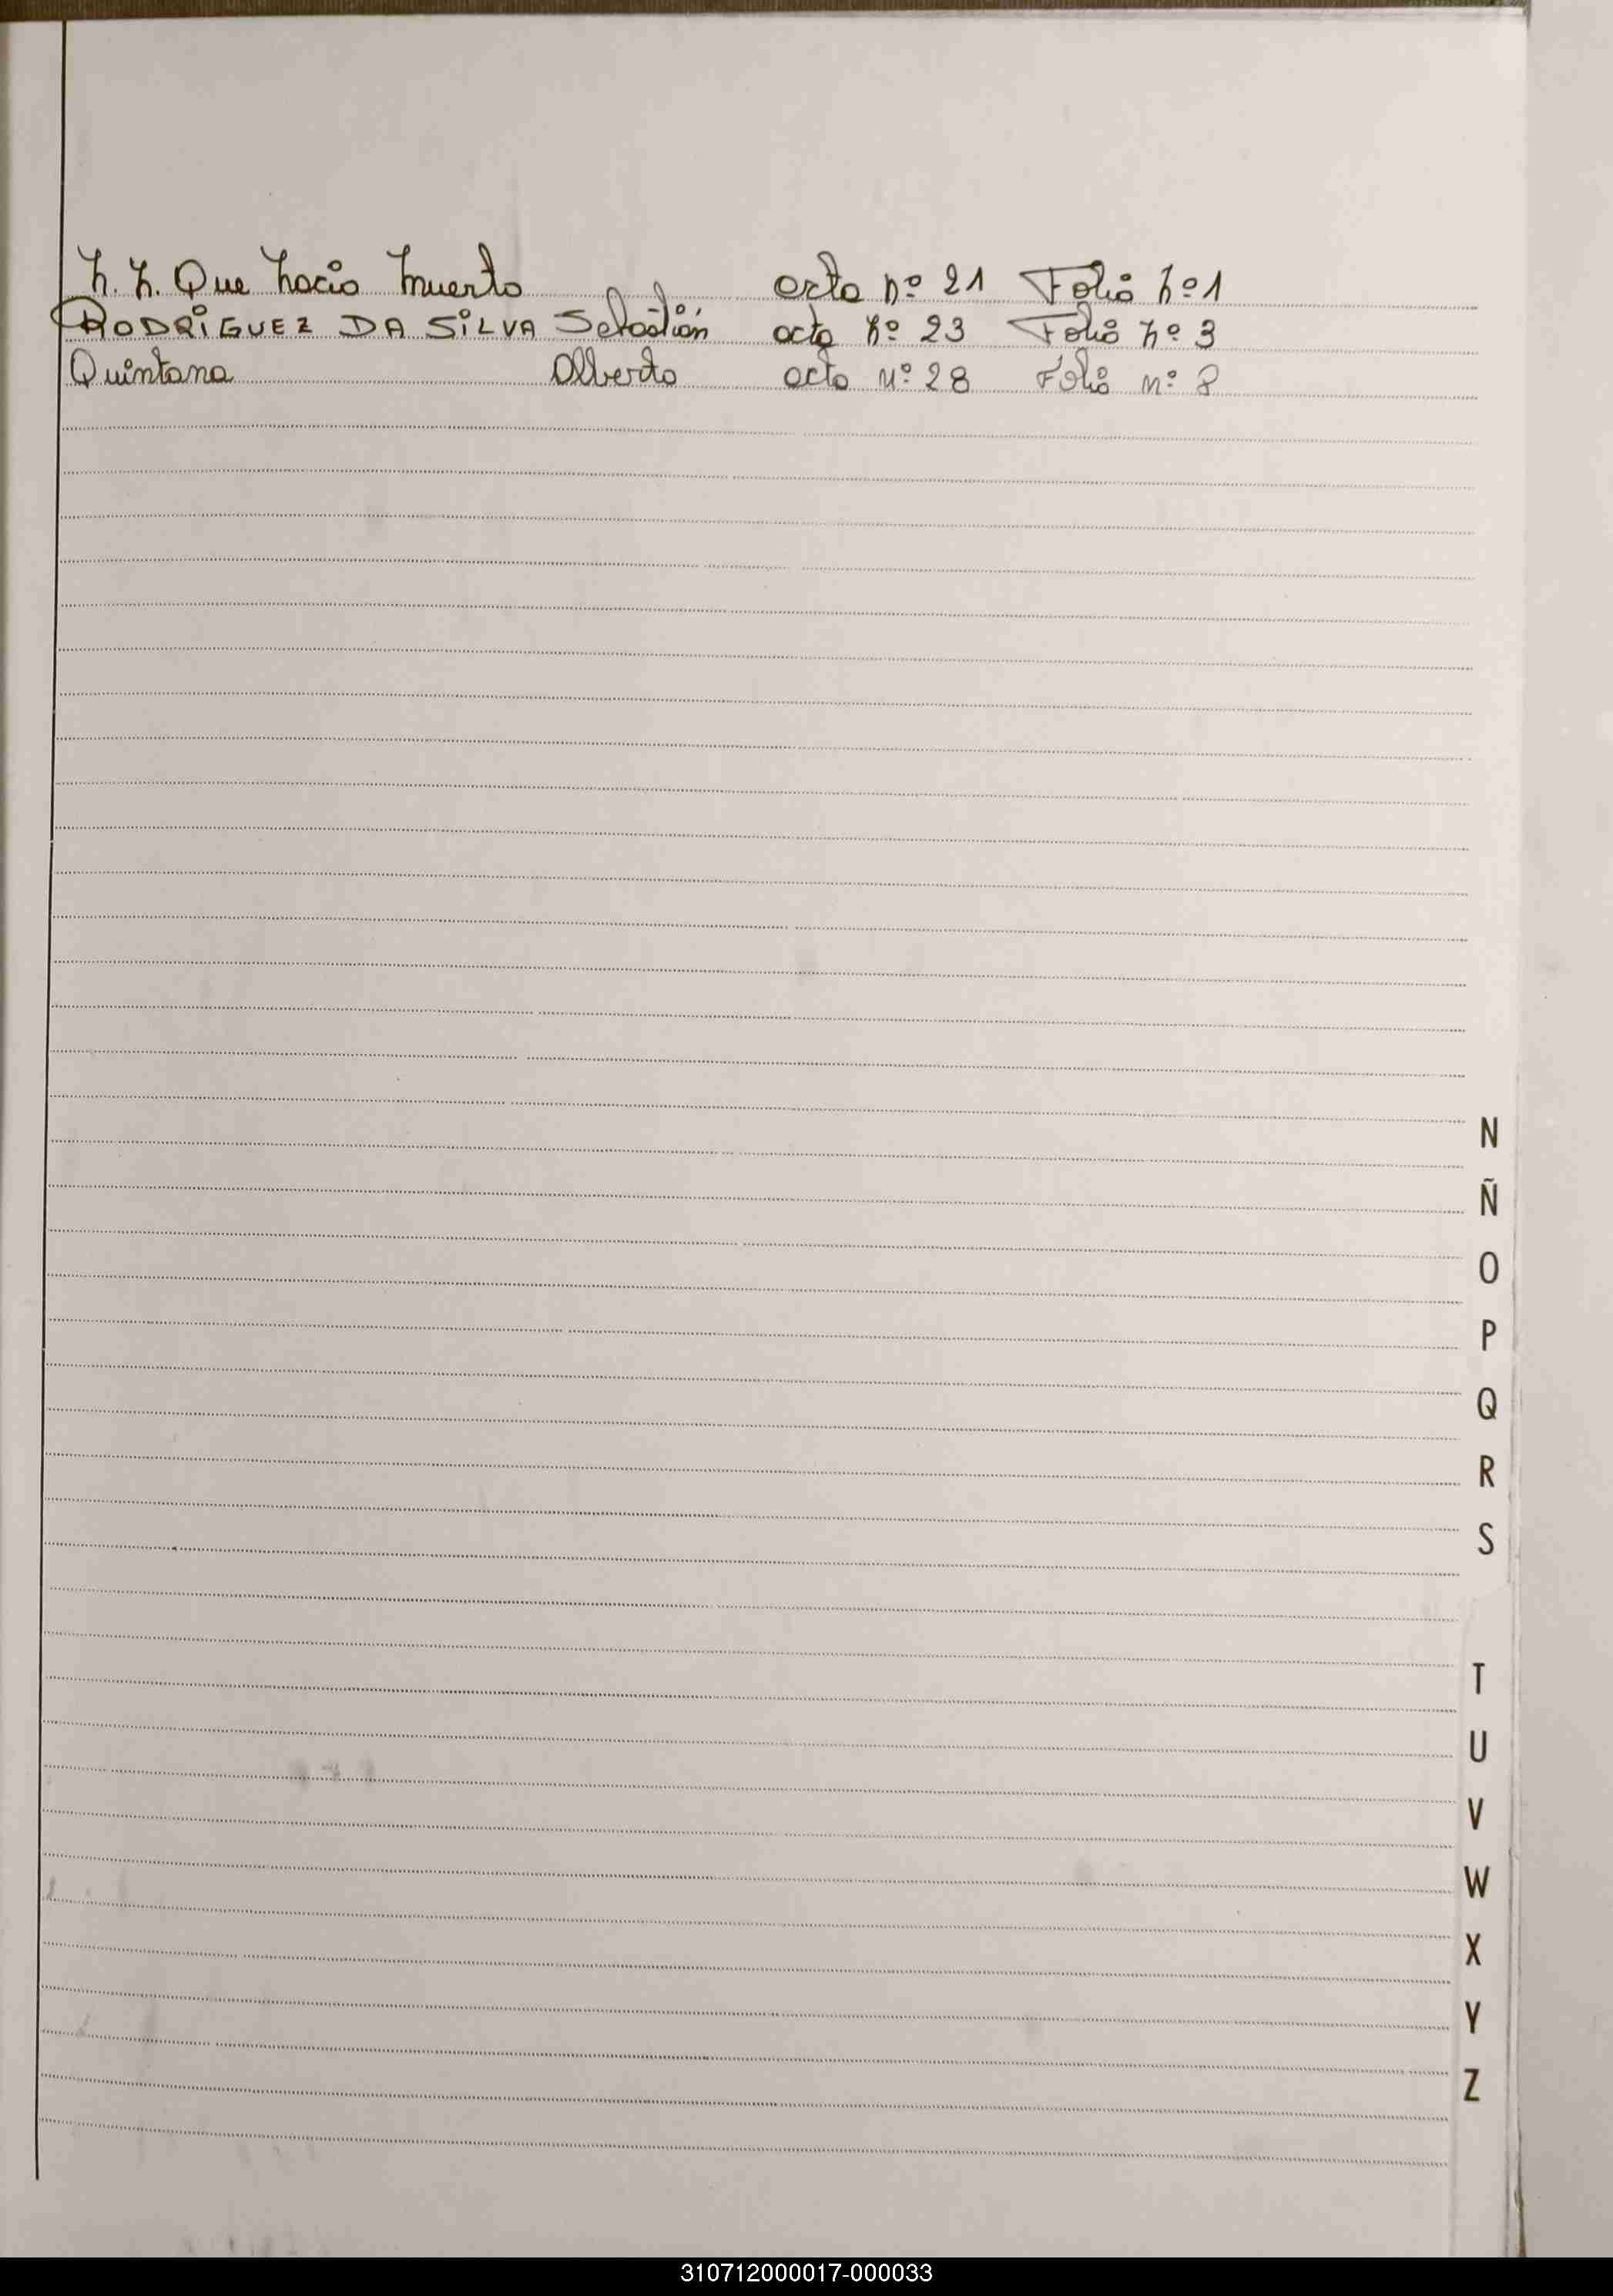 N. N. Que Nacio Muerto acta nº 21 Folio Nº 1
RODRIGUEZ DA SILVA Sebastián acta Nº 23 Folio Nº 3
Quintana Alberto acta Nº 28 Folio Nº 8
N
Ñ
O
P
Q
R
S
T
U
V
W
X
Y
Z
310712000017-000033